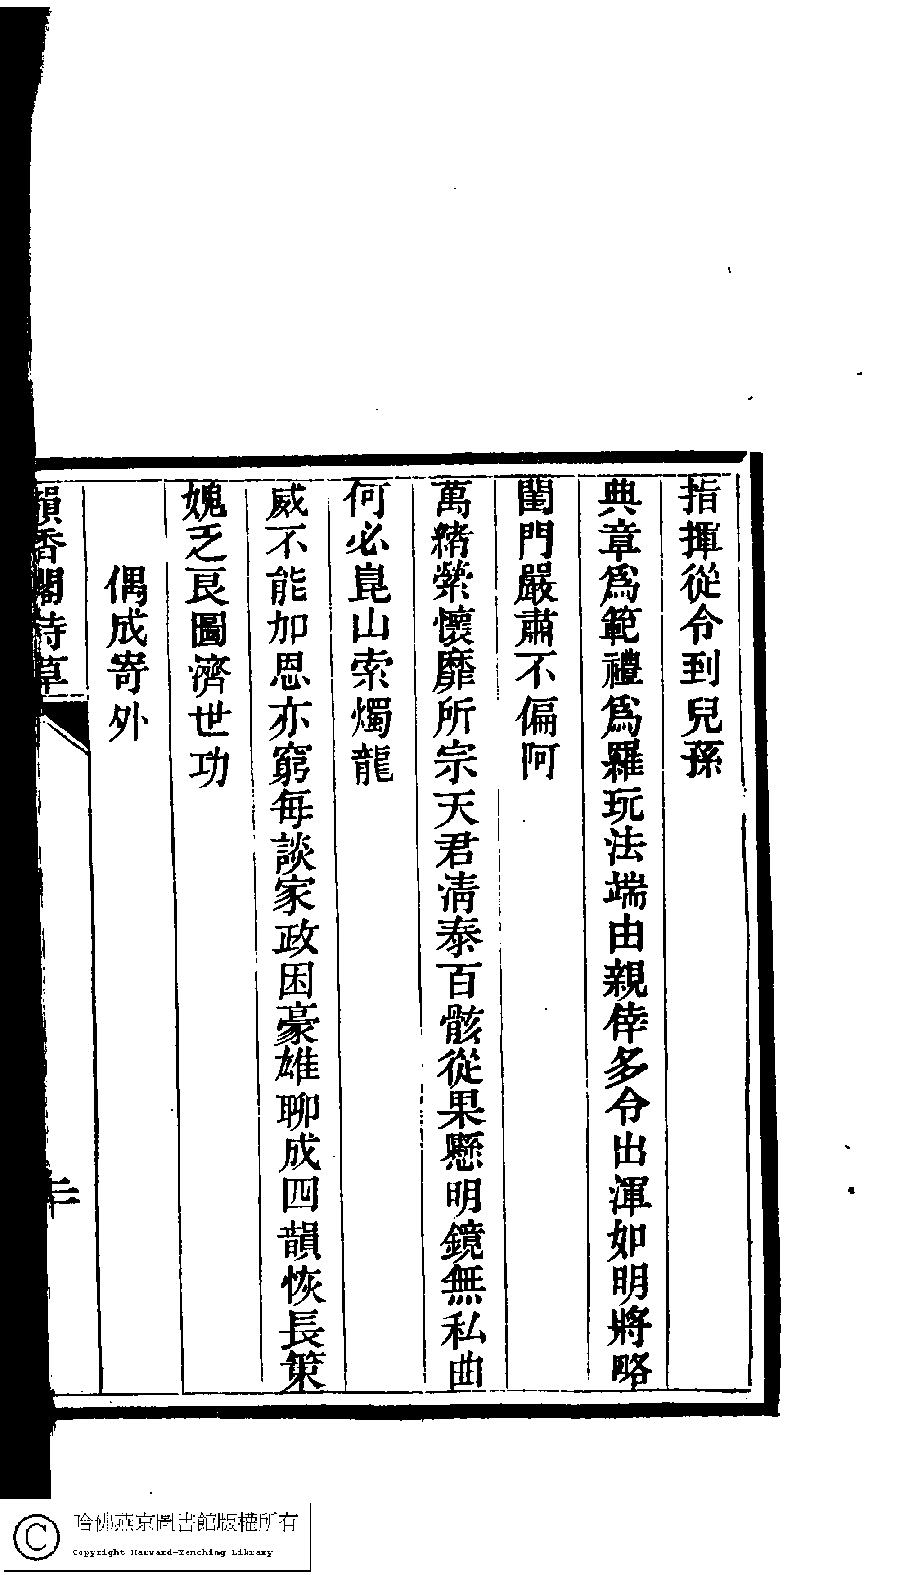 指揮從令到兒孫
典章爲範禮爲羅玩法端由親倖多令出渾如明將略
閨門嚴肅不偏阿
萬緒縈懷靡所宗天君清泰百骸從果懸明鏡無私曲
何必崑山索燭龍
威不能加恩亦窮每談家政困豪雄聊成四韻恢長策
媿乏良圖濟世功
偶成寄外
韻香閣詩草
二
哈佛燕京圖書館版權所有
Copyright Harvard-Yenching Library